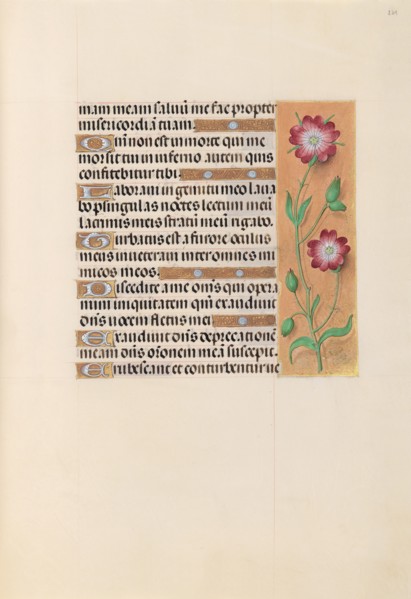 mam meam salvū me fac propter
misericordiā tuam.
Qm̄ non est in morte qui me
mor sit tui in inferno autem quis
confitebitur tibi.
Laboravi in gemitu meo lava
bo p singulas noctes lectum meū
lacrimis meis stratū meū rigabo.
Turbatus est a furore oculus
meus inveteravi inter omnes ini
micos meos.
Discedite a me omēs qui opera
mini iniquitatem qm̄ exaudivit
dn̄s vocem fletus mei.
Exaudivit dn̄s deprecationē
meam dn̄s orōnem meā suscepit.
Erubescant et conturbentur ve